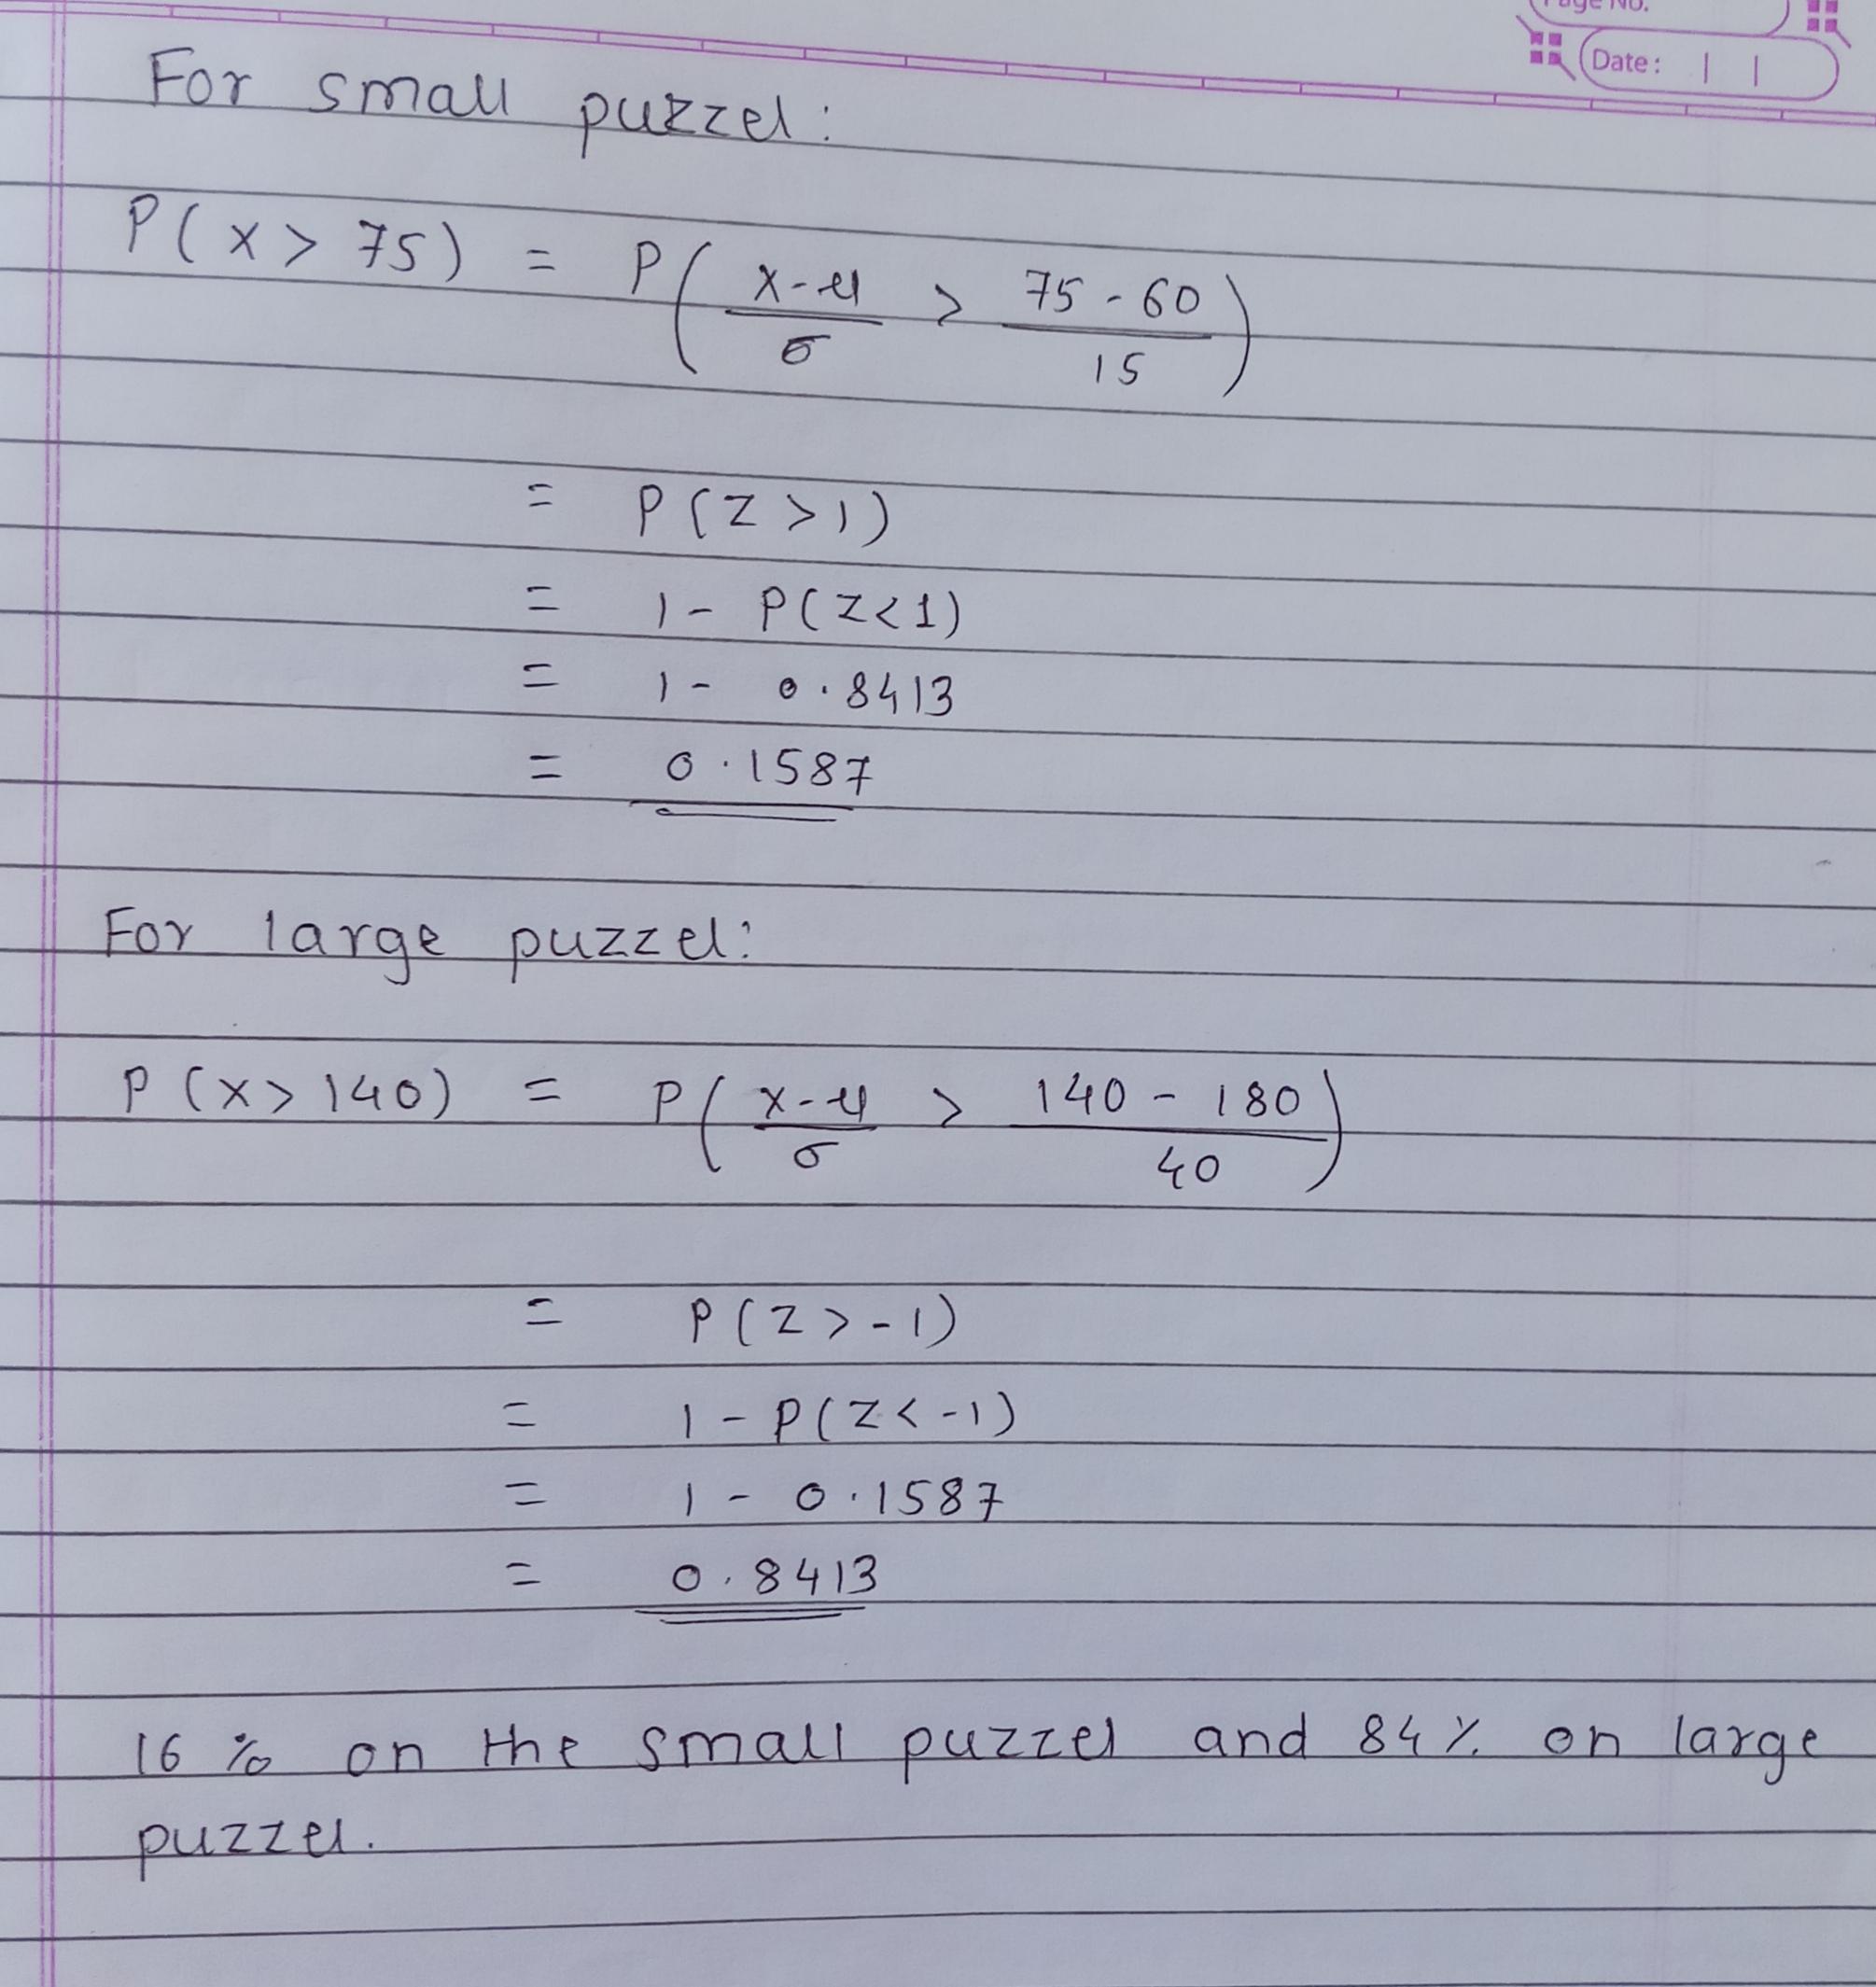 Page No.
Date: | |
For small puzzel:
P(x > 75) = P((x-μ)/σ > (75-60)/15)
= P(Z>1)
= 1- P(Z<1)
= 1- 0.8413
= 0.1587
For large puzzel:
P(x> 140) = P((x-μ)/σ > (140-180)/40)
= P(Z>-1)
= 1-P(Z<-1)
= 1- 0.1587
= 0.8413
16 % on the small puzzel and 84% on large
puzzel.